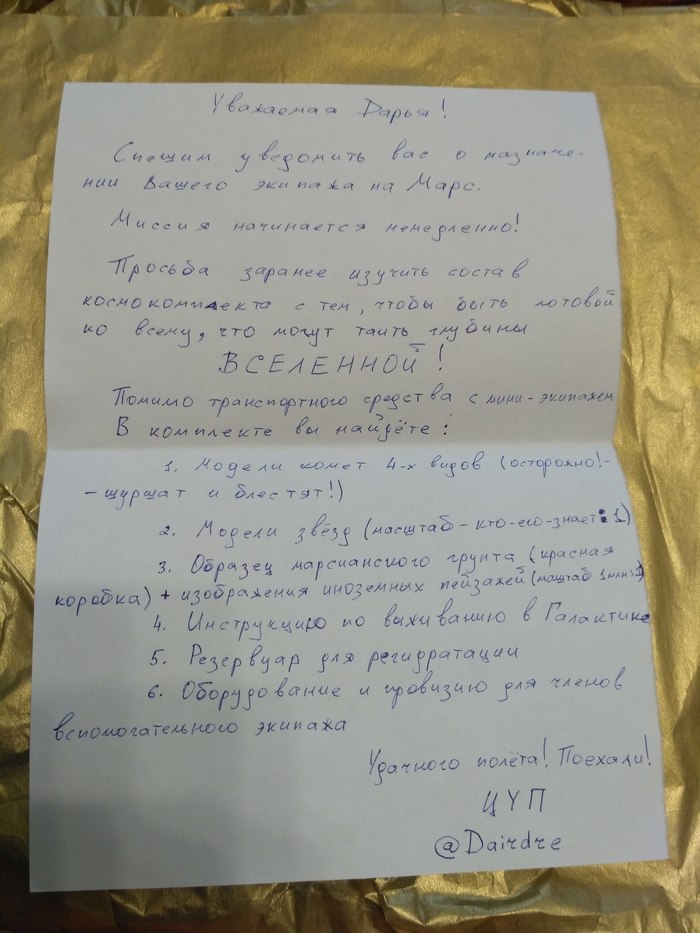 Уважаемая Дарья!
Спешим уведомить вас о назначе-
нии Вашего экипажа на Марс.
Миссия начинается немедленно!
Просьба заранее изучить состав
космокомплекта с тем, чтобы быть готовой
ко всему, что могут таить глубины
ВСЕЛЕННОЙ!
Помимо транспортного средства с мини-экипажем
В комплекте вы найдёте:
1. Модели комет 4-х видов (осторожно!-
-шуршат и блестят!)
2. Модели звёзд (масштаб-кто-его-знает:1)
3. Образец марсианского грунта (красная
коробка) + изображения иноземных пейзажей (маштаб 1млн:1)
4. Инструкцию по выживанию в Галактике
5. Резервуар для регидратации
6. Оборудование и провизию для членов
вспомогательного экипажа
Удачного полёта! Поехали!
ЦУП
@Dairdre